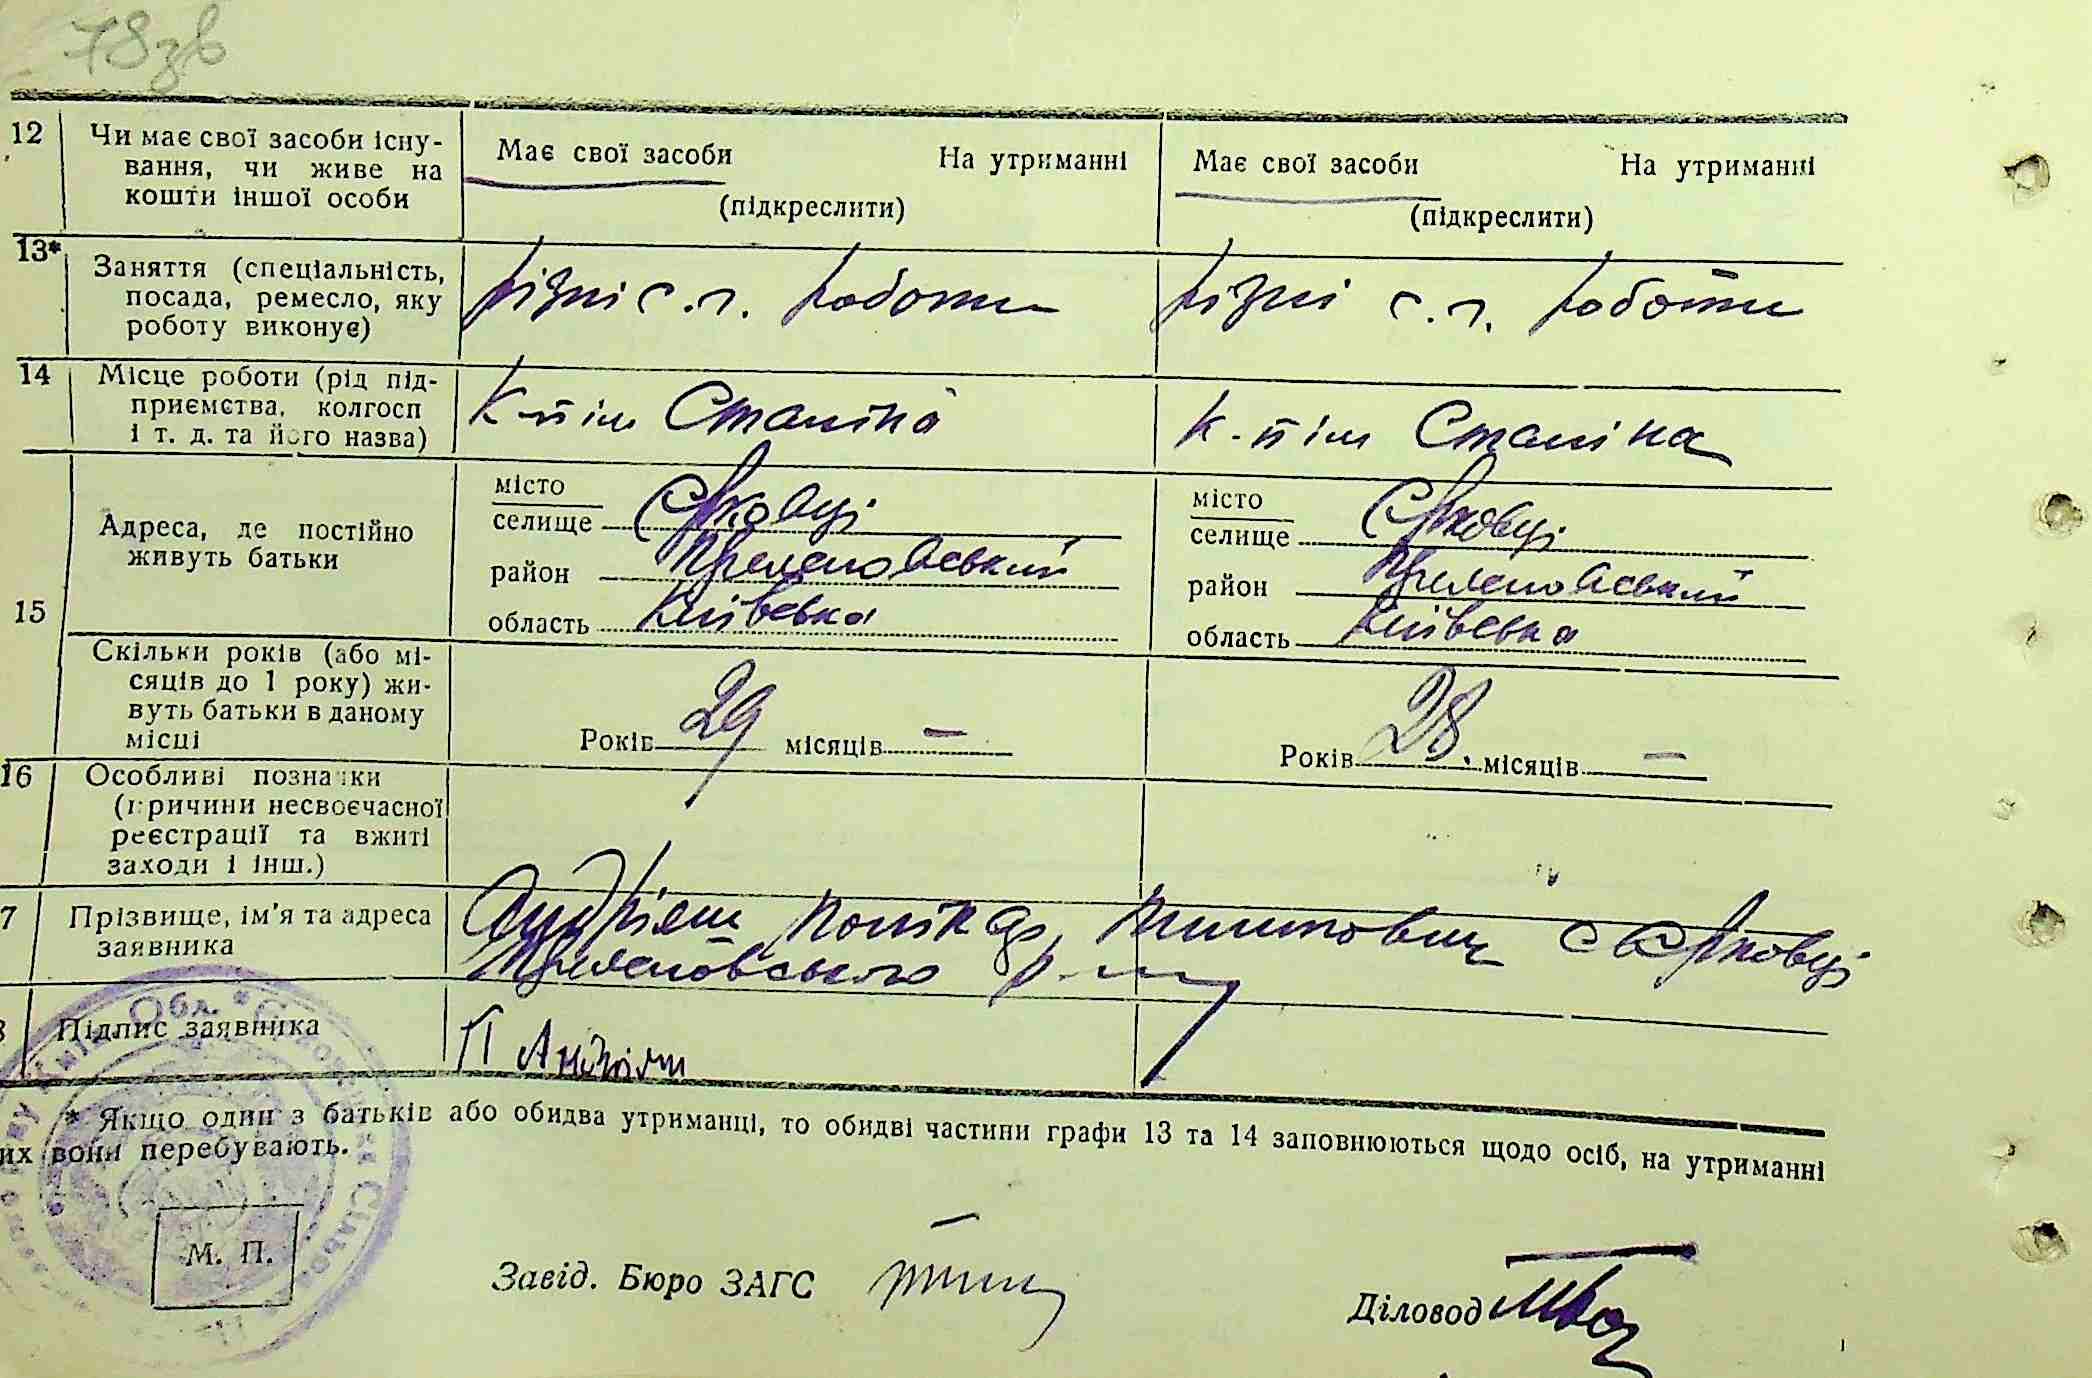 78зв
12 Чи має свої засоби існу- Має свої засоби На утриманні Має свої засоби На утриманні
вання, чи живе на
кошти іншої особи (підкреслити) (підкреслити)
13* Заняття (спеціальність, різні с.г. роботи різні с.г. роботи
посада, ремесло, яку
роботу виконує)
14 Місце роботи (рід під- К-п ім Сталіна К-п ім Сталіна
приємства, колгосп
і т. д. та його назва)
15 Адреса, де постійно місто місто
живуть батьки селище Єрковці селище Єрковці
район Переяславський район Переяславський
область Київська область Київська
Скільки років (або мі-
сяців до 1 року) жи-
вуть батьки в даному
місці Років 29 місяців — Років 28. місяців —
16 Особливі познаки
(причини несвоєчасної
реєстрації та вжиті
заходи і інш.)
7 Прізвище, ім'я та адреса Андріяш Полікар. с Єрковці
заявника р-ну
8 Підпис заявника П Андріяш
* Якщо один з батьків або обидва утриманці, то обидві частини графи 13 та 14 заповнюються щодо осіб, на утриманні
их вони перебувають.
М. П.
Завід. Бюро ЗАГС
Діловод